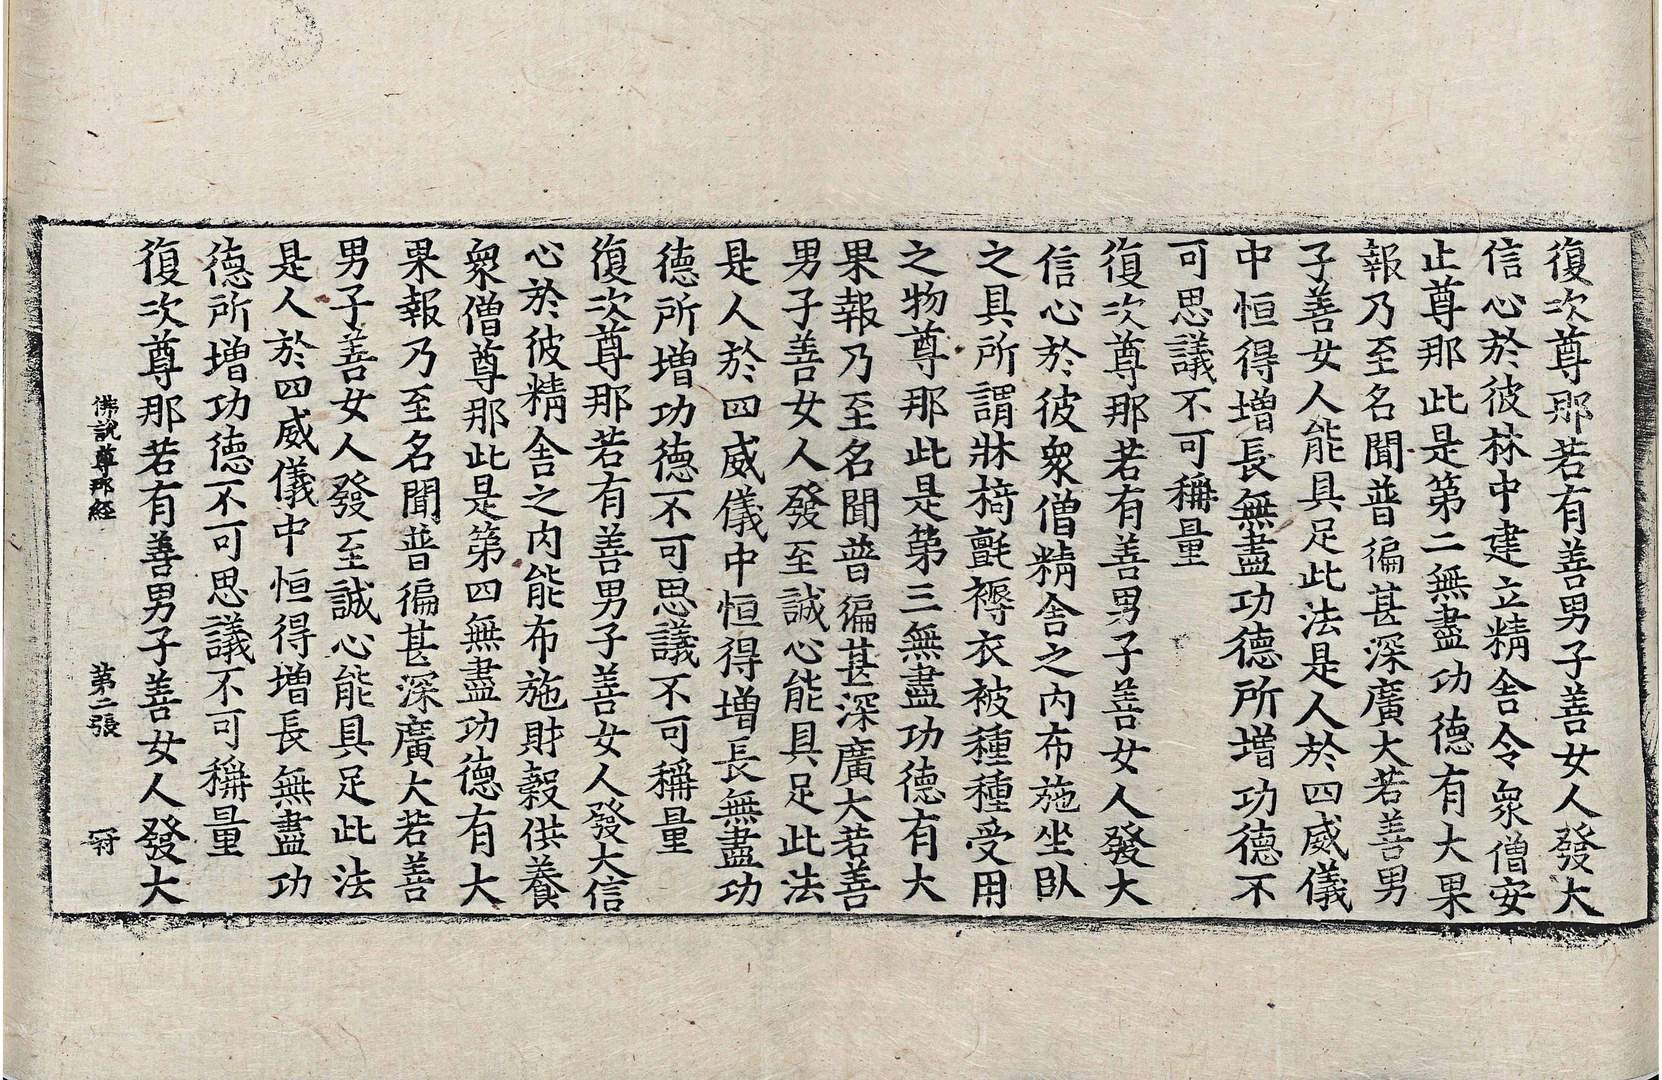 復次尊那若有善男子善女人發大
信心於彼林中建立精舍令衆僧安
止尊那此是第二無盡功德有大果
報乃至名聞普徧甚深廣大若善男
子善女人能具足此法是人於四威儀
中恒得增長無盡功德所增功德不
可思議不可稱量
復次尊那若有善男子善女人發大
信心於彼衆僧精舍之內布施坐臥
之具所謂牀椅氈褥衣被種種受用
之物尊那此是第三無盡功德有大
果報乃至名聞普徧甚深廣大若善
男子善女人發至誠心能具足此法
是人於四威儀中恒得增長無盡功
德所增功德不可思議不可稱量
復次尊那若有善男子善女人發大信
心於彼精舍之內能布施財穀供養
衆僧尊那此是第四無盡功德有大
果報乃至名聞普徧甚深廣大若善
男子善女人發至誠心能具足此法
是人於四威儀中恒得增長無盡功
德所增功德不可思議不可稱量
復次尊那若有善男子善女人發大
佛說尊那經 第二張 冠